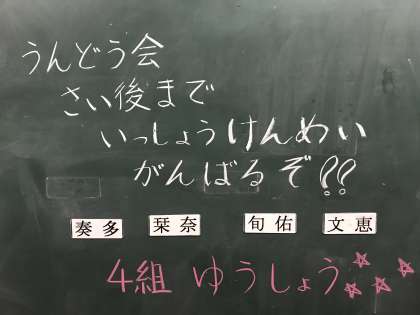 うんどう会
さい後まで
いっしょうけんめい
がんばるぞ!!
奏多 栞奈 旬佑 文恵
4組 ゆうしょう☆☆☆☆